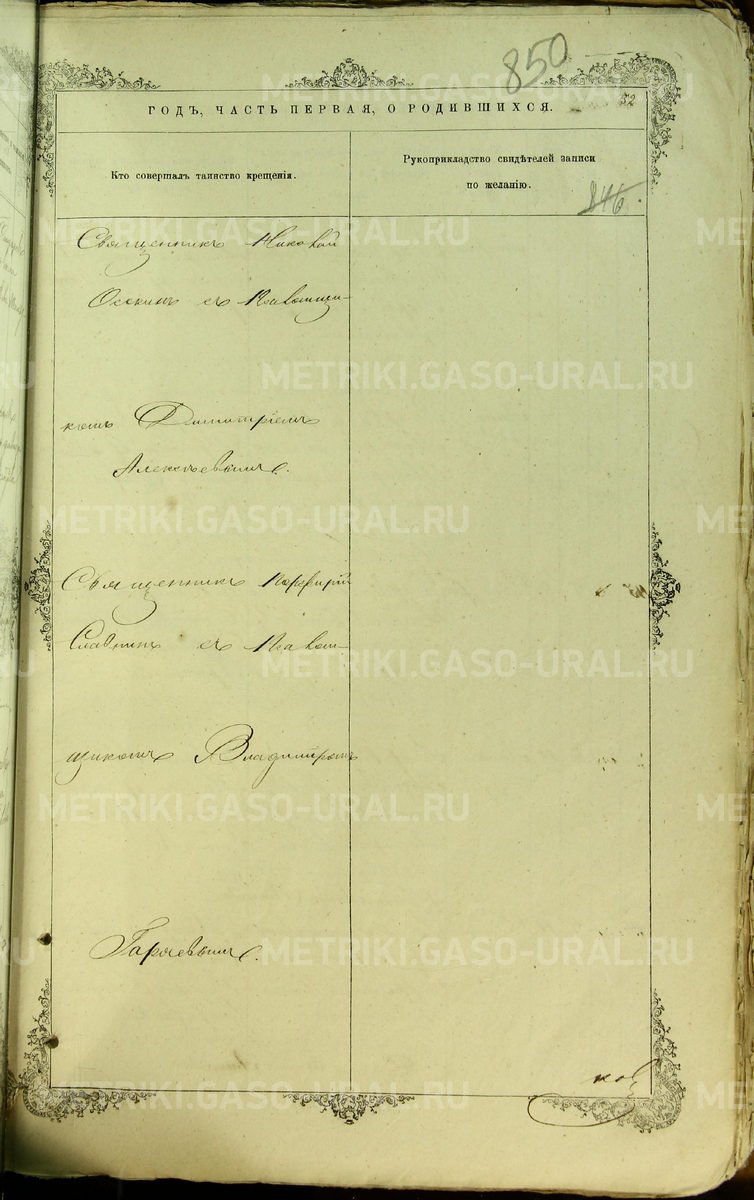 850
ГОДЪ, ЧАСТЬ ПЕРВАЯ, О РОДИВШИХСЯ.
52
Кто совершалъ таинство крещенія.
Рукоприкладство свидѣтелей записи
по желанію.
846.
Священникъ Николай
Осокинъ съ Псаломщи-
комъ Димитріемъ
Алексѣевымъ.
Священникъ Порфирій
Славнинъ съ Псалом-
щикомъ Владиміромъ
Гаряевымъ.
METRIKI.GASO-URAL.RU